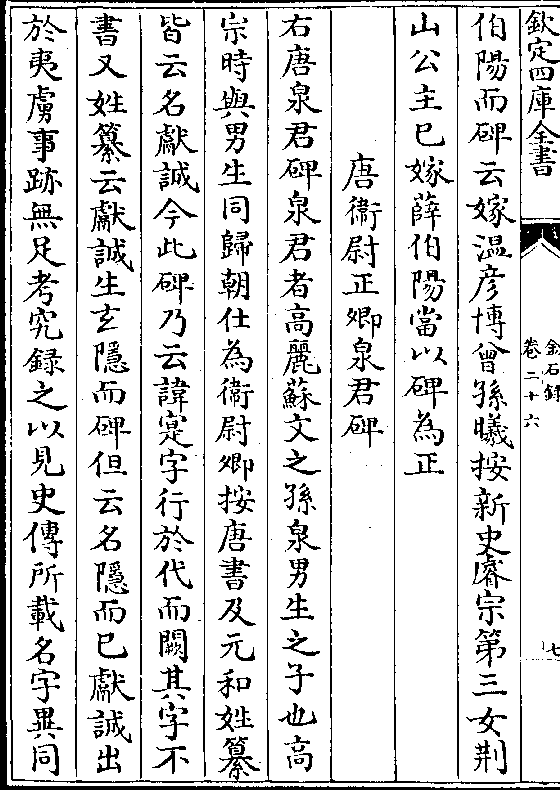 欽定四庫全書
金石録
卷二十六
七
伯陽而碑云嫁溫彦博曾孫曦按新史睿宗第三女荆
山公主已嫁薛伯陽當以碑為正
唐衛尉正卿泉君碑
右唐泉君碑泉君者高麗蘇文之孫泉男生之子也高
宗時與男生同歸朝仕為衛尉卿按唐書及元和姓纂
皆云名獻誠今此碑乃云諱寔字行於代而闕其字不
書又姓纂云獻誠生𤣥隱而碑但云名隱而已獻誠出
於夷虜事跡無足考究録之以見史傳所載名字異同